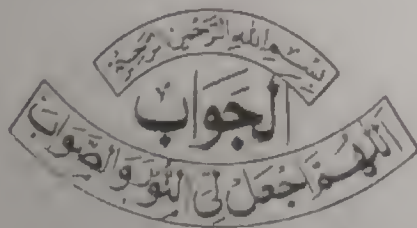 بِسْمِ اللهِ الرَّحْمٰنِ الرَّحِيْمِ
الجَوَابُ
اَللّٰهُمَّ اجْعَلْ لِّيَ النُّوْرَ وَالصَّوَابَ